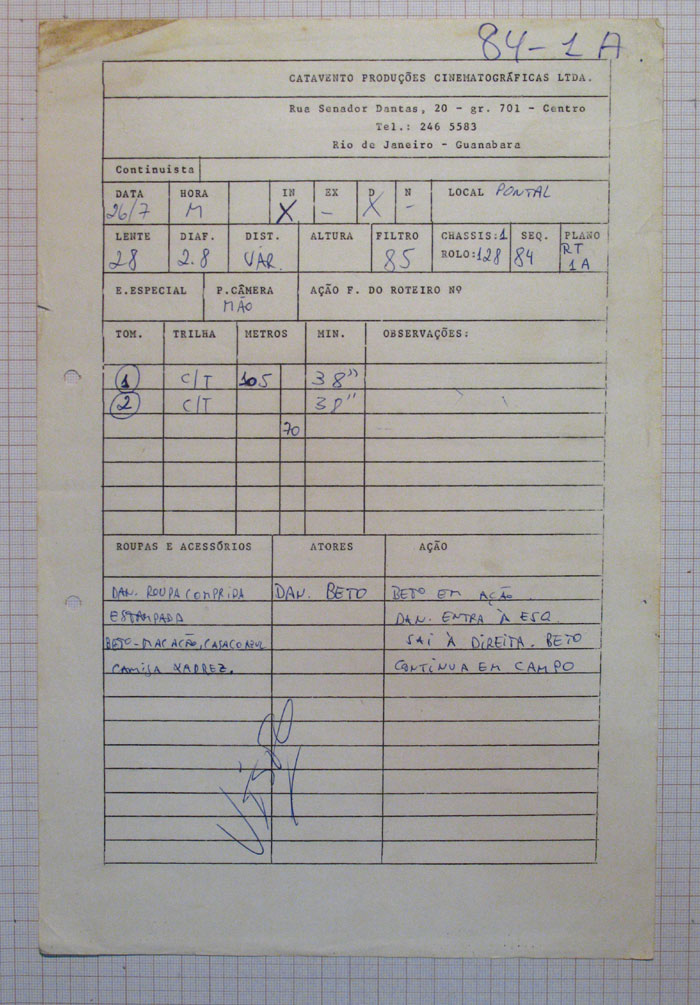 84-1A.
CATAVENTO PRODUÇÕES CINEMATOGRÁFICAS LTDA.
Rua Senador Dantas, 20 - gr. 701 - Centro
Tel.: 246 5583
Rio de Janeiro - Guanabara
Continuista
DATA HORA IN EX D N LOCAL PONTAL
26/7 M X - X -
LENTE DIAF. DIST. ALTURA FILTRO CHASSIS:1 SEQ. PLANO
28 2.8 VAR. 85 ROLO:128 84 RT 1A
E.ESPECIAL P.CÂMERA AÇÃO F. DO ROTEIRO Nº
MÃO
TOM. TRILHA METROS MIN. OBSERVAÇÕES:
1 C/T 105 38"
2 C/T 38"
70
ROUPAS E ACESSÓRIOS ATORES AÇÃO
DAN. ROUPA COMPRIDA DAN. BETO BETO EM AÇÃO
ESTAMPADA DAN. ENTRA À ESQ.
BETO-MACACÃO, CASACO AZUL SAI À DIREITA. BETO
CAMISA XADREZ. CONTINUA EM CAMPO